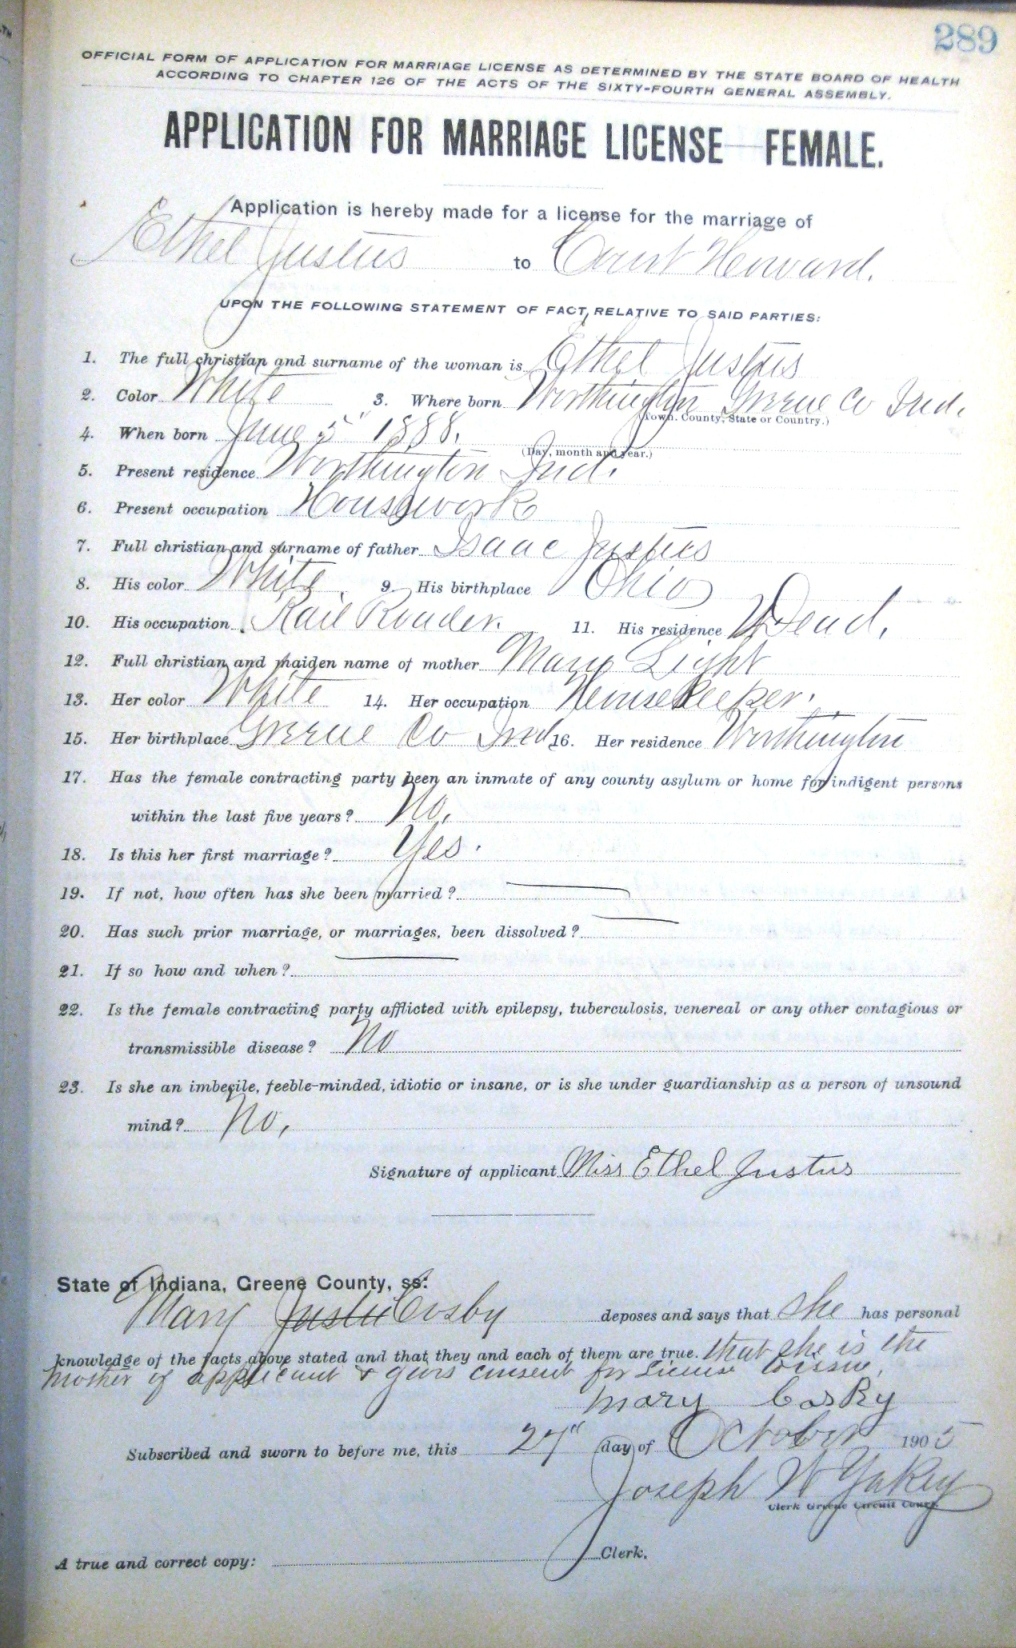 289
OFFICIAL FORM OF APPLICATION FOR MARRIAGE LICENSE AS DETERMINED BY THE STATE BOARD OF HEALTH
ACCORDING TO CHAPTER 126 OF THE ACTS OF THE SIXTY-FOURTH GENERAL ASSEMBLY.
APPLICATION FOR MARRIAGE LICENSE FEMALE.
Application is hereby made for a license for the marriage of
Ethel Justus to Court Howard.
UPON THE FOLLOWING STATEMENT OF FACT, RELATIVE TO SAID PARTIES:
1. The full christian and surname of the woman is Ethel Justus
2. Color White 3. Where born Worthington Greene Co Ind.
(Town, County, State or Country.)
4. When born June 5" 1888.
(Day, month and year.)
5. Present residence Worthington Ind.
6. Present occupation Housework
7. Full christian and surname of father Isaac Justus
8. His color White 9. His birthplace Ohio
10. His occupation Rail Roader. 11. His residence Dead.
12. Full christian and maiden name of mother Mary Light
13. Her color White 14. Her occupation Housekeeper.
15. Her birthplace Greene Co Ind 16. Her residence Worthington
17. Has the female contracting party been an inmate of any county asylum or home for indigent persons
within the last five years? No.
18. Is this her first marriage? Yes.
19. If not, how often has she been married?
20. Has such prior marriage, or marriages, been dissolved?
21. If so how and when?
22. Is the female contracting party afflicted with epilepsy, tuberculosis, venereal or any other contagious or
transmissible disease? No
23. Is she an imbecile, feeble-minded, idiotic or insane, or is she under guardianship as a person of unsound
mind? No.
Signature of applicant Miss Ethel Justus
State of Indiana, Greene County, ss:
Mary deposes and says that she has personal
knowledge of the facts above stated and that they and each of them are true. that she is the
mother of applicant & gives consent for License to issue,
Mary
Subscribed and sworn to before me, this 27" day of October 1905
Joseph W Yakey
Clerk Greene Circuit Court.
A true and correct copy: Clerk.